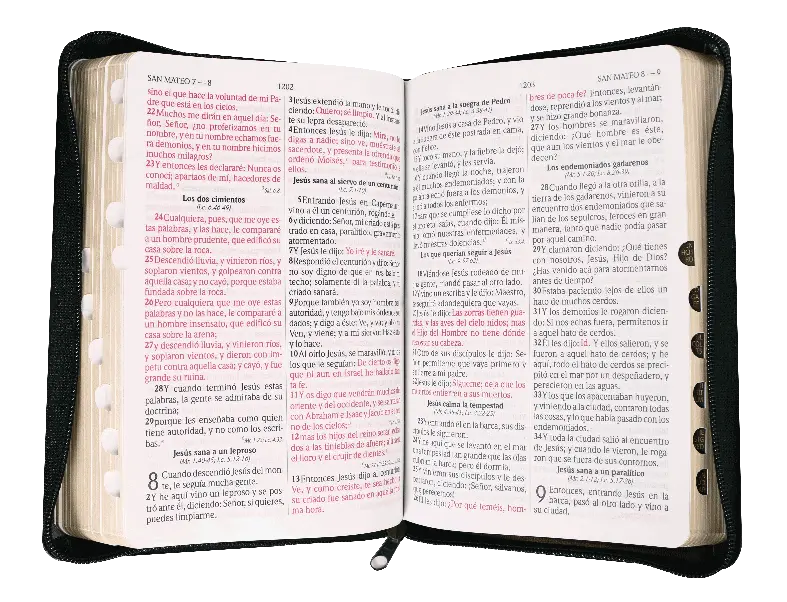 SAN MATEO 7 — 8
1202
sino el que hace la voluntad de mi Pa-
dre que está en los cielos.
22 Muchos me dirán en aquel día: Se-
ñor, Señor, ¿no profetizamos en tu
nombre, y en tu nombre echamos fue-
ra demonios, y en tu nombre hicimos
muchos milagros?
23 Y entonces les declararé: Nunca os
conocí; apartaos de mí, hacedores de
maldad.
Los dos cimientos
(Lc. 6.46-49)
24 Cualquiera, pues, que me oye es-
tas palabras, y las hace, le compararé
a un hombre prudente, que edificó su
casa sobre la roca.
25 Descendió lluvia, y vinieron ríos, y
soplaron vientos, y golpearon contra
aquella casa; y no cayó, porque estaba
fundada sobre la roca.
26 Pero cualquiera que me oye estas
palabras y no las hace, le compararé a
un hombre insensato, que edificó su
casa sobre la arena;
27 y descendió lluvia, y vinieron ríos,
y soplaron vientos, y dieron con ím-
petu contra aquella casa; y cayó, y fue
grande su ruina.
28 Y cuando terminó Jesús estas
palabras, la gente se admiraba de su
doctrina;
29 porque les enseñaba como quien
tiene autoridad, y no como los escri-
bas.
Jesús sana a un leproso
8 Cuando descendió Jesús del mon-
te, le seguía mucha gente.
2 Y he aquí vino un leproso y se pos-
tró ante él, diciendo: Señor, si quieres,
puedes limpiarme.
3 Jesús extendió la mano y le tocó, di-
ciendo: Quiero; sé limpio. Y al instan-
te su lepra desapareció.
4 Entonces Jesús le dijo: Mira, no lo
digas a nadie; sino ve, muéstrate al
sacerdote, y presenta la ofrenda que
ordenó Moisés, para testimonio a
ellos.
Jesús sana al siervo de un centurión
5 Entrando Jesús en Capernaum,
vino a él un centurión, rogándole,
6 y diciendo: Señor, mi criado está pos-
trado en casa, paralítico, gravemente
atormentado.
7 Y Jesús le dijo: Yo iré y le sanaré.
8 Respondió el centurión y dijo: Señor,
no soy digno de que entres bajo mi
techo; solamente di la palabra, y mi
criado sanará.
9 Porque también yo soy hombre bajo
autoridad, y tengo bajo mis órdenes sol-
dados; y digo a éste: Ve, y va; y al otro:
Ven, y viene; y a mi siervo: Haz esto,
y lo hace.
10 Al oírlo Jesús, se maravilló, y dijo a
los que le seguían: De cierto os digo,
que ni aun en Israel he hallado tan-
ta fe.
11 Y os digo que vendrán muchos del
oriente y del occidente, y se sentarán
con Abraham e Isaac y Jacob en el rei-
no de los cielos;
12 mas los hijos del reino serán echa-
dos a las tinieblas de afuera; allí será
el lloro y el crujir de dientes.
13 Entonces Jesús dijo al centurión:
Ve, y como creíste, te sea hecho. Y
su criado fue sanado en aquella mis-
ma hora.
1203
SAN MATEO 8 — 9
Jesús sana a la suegra de Pedro
14 Vino Jesús a casa de Pedro, y vio
a la suegra de éste postrada en cama,
con fiebre.
15 Y tocó su mano, y la fiebre la dejó;
y ella se levantó, y les servía.
16 Y cuando llegó la noche, trajeron
a él muchos endemoniados; y con la
palabra echó fuera a los demonios, y
sanó a todos los enfermos;
17 para que se cumpliese lo dicho por
el profeta Isaías, cuando dijo: Él mis-
mo tomó nuestras enfermedades, y
llevó nuestras dolencias.
Los que querían seguir a Jesús
18 Viéndose Jesús rodeado de mu-
cha gente, mandó pasar al otro lado.
19 Y vino un escriba y le dijo: Maestro,
te seguiré adondequiera que vayas.
20 Jesús le dijo: Las zorras tienen gua-
ridas, y las aves del cielo nidos; mas
el Hijo del Hombre no tiene dónde
recostar su cabeza.
21 Otro de sus discípulos le dijo: Se-
ñor, permíteme que vaya primero y
entierre a mi padre.
22 Jesús le dijo: Sígueme; deja que los
muertos entierren a sus muertos.
Jesús calma la tempestad
23 Y entrando él en la barca, sus dis-
cípulos le siguieron.
24 Y he aquí que se levantó en el mar
una tempestad tan grande que las olas
cubrían la barca; pero él dormía.
25 Y vinieron sus discípulos y le des-
pertaron, diciendo: ¡Señor, sálvanos,
que perecemos!
26 Él les dijo: ¿Por qué teméis, hom-
bres de poca fe? Entonces, levantán-
dose, reprendió a los vientos y al mar;
y se hizo grande bonanza.
27 Y los hombres se maravillaron,
diciendo: ¿Qué hombre es éste,
que aun los vientos y el mar le obe-
decen?
Los endemoniados gadarenos
28 Cuando llegó a la otra orilla, a la
tierra de los gadarenos, vinieron a su
encuentro dos endemoniados que sa-
lían de los sepulcros, feroces en gran
manera, tanto que nadie podía pasar
por aquel camino.
29 Y clamaron diciendo: ¿Qué tienes
con nosotros, Jesús, Hijo de Dios?
¿Has venido acá para atormentarnos
antes de tiempo?
30 Estaba paciendo lejos de ellos un
hato de muchos cerdos.
31 Y los demonios le rogaron dicien-
do: Si nos echas fuera, permítenos ir
a aquel hato de cerdos.
32 Él les dijo: Id. Y ellos salieron, y se
fueron a aquel hato de cerdos; y he
aquí, todo el hato de cerdos se preci-
pitó en el mar por un despeñadero, y
perecieron en las aguas.
33 Y los que los apacentaban huyeron,
y viniendo a la ciudad, contaron todas
las cosas, y lo que había pasado con los
endemoniados.
34 Y toda la ciudad salió al encuentro
de Jesús; y cuando le vieron, le roga-
ron que se fuera de sus contornos.
Jesús sana a un paralítico
9 Entonces, entrando Jesús en la
barca, pasó al otro lado y vino a
su ciudad.